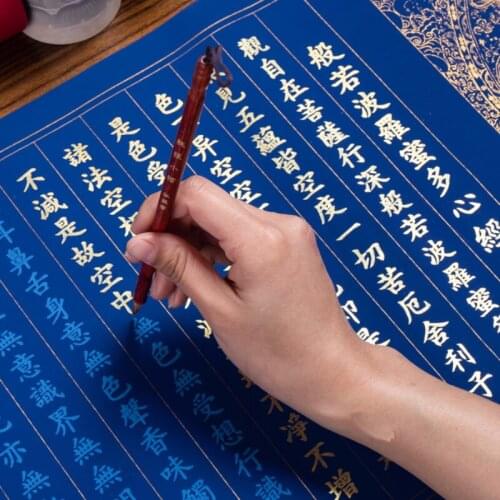 般若波羅蜜多心經
觀自在菩薩行深般若波羅蜜
見五蘊皆空度一切苦厄舍利子
色異空即是
是色受
諸法空相淨不增
不減是故空中無色無受想行識
耳鼻舌身意無色聲香味觸
無意識界無無
亦無